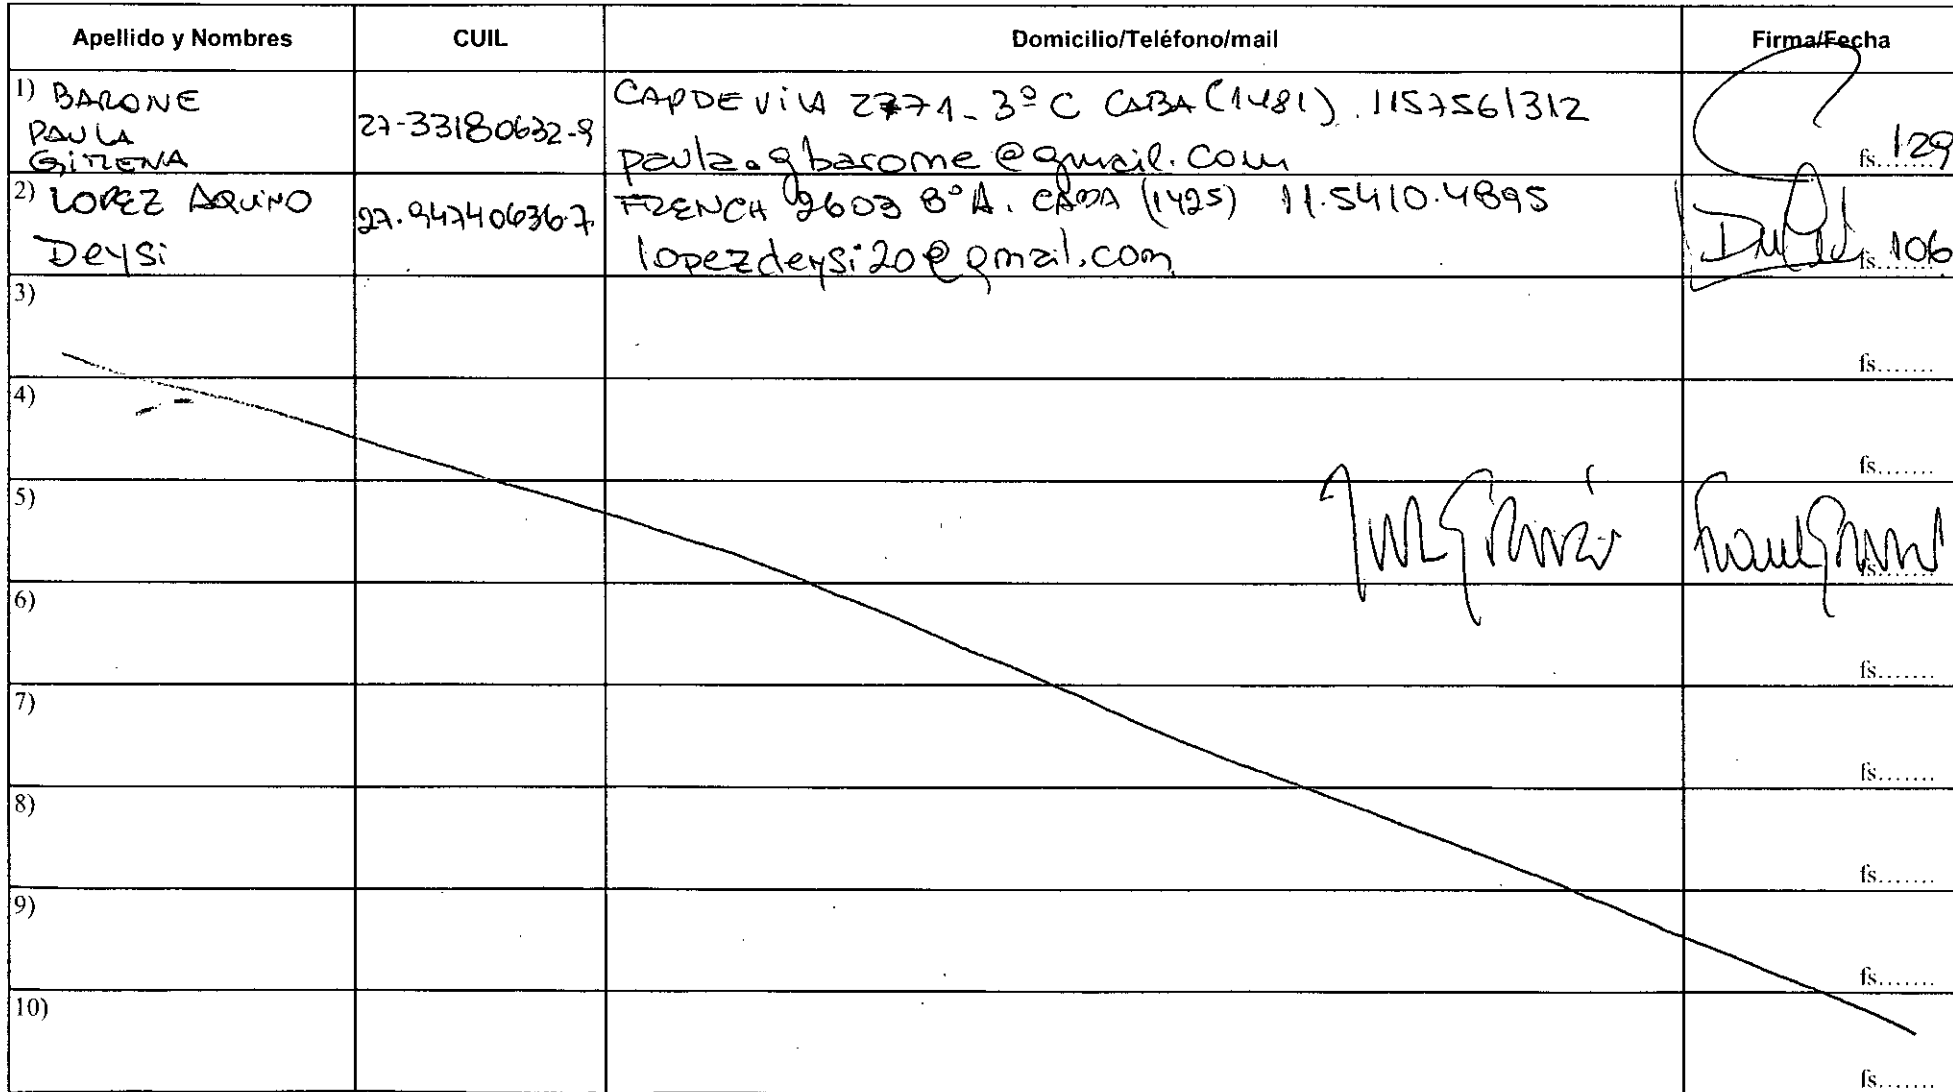 Apellido y Nombres CUIL Domicilio/Teléfono/mail Firma/Fecha
1) BARONE
PAULA
GIMENA
27-33180632-9
CAPDEVILA 2771_3º C CABA (1481). 1157561312
paula.gbarone@gmail.com
fs....... 129
2) LOPEZ AQUINO
Deysi
27.94740636.7
FRENCH 2603 8ºA. CABA (1425) 11.5410.4895
lopezdeysi20@gmail.com
fs....... 106
3)
fs.......
4)
fs.......
5)
fs.......
6)
fs.......
7)
fs.......
8)
fs.......
9)
fs.......
10)
fs.......